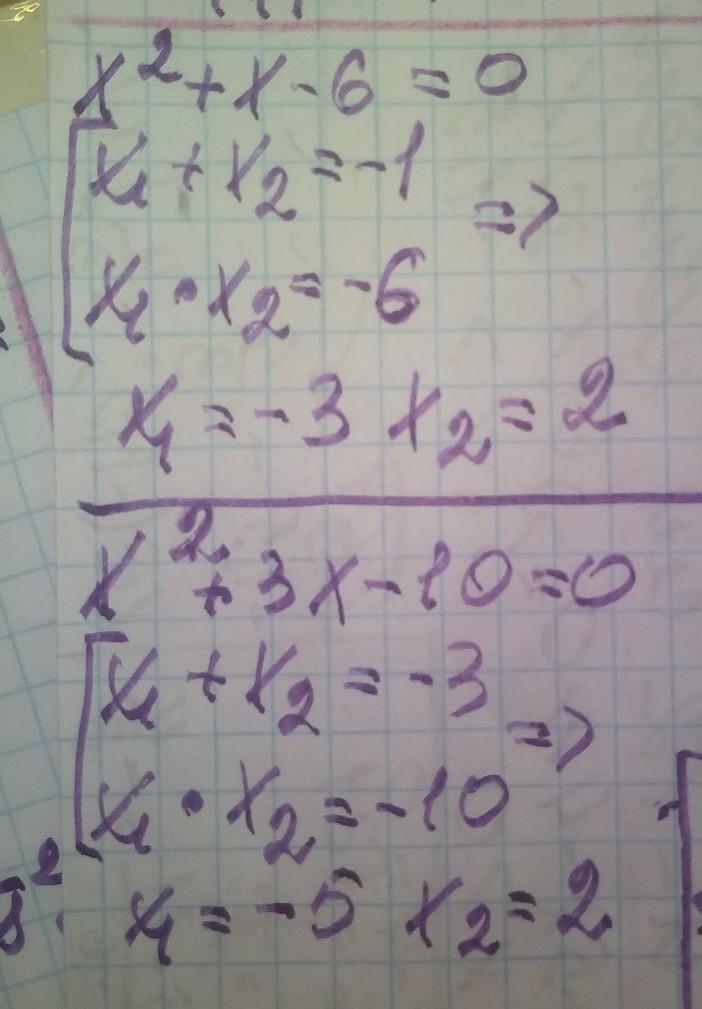 x² + x - 6 = 0
x₁ + x₂ = -1
=>
x₁ • x₂ = -6
x₁ = -3 x₂ = 2
x² + 3x - 10 = 0
x₁ + x₂ = -3
=>
x₁ • x₂ = -10
x₁ = -5 x₂ = 2